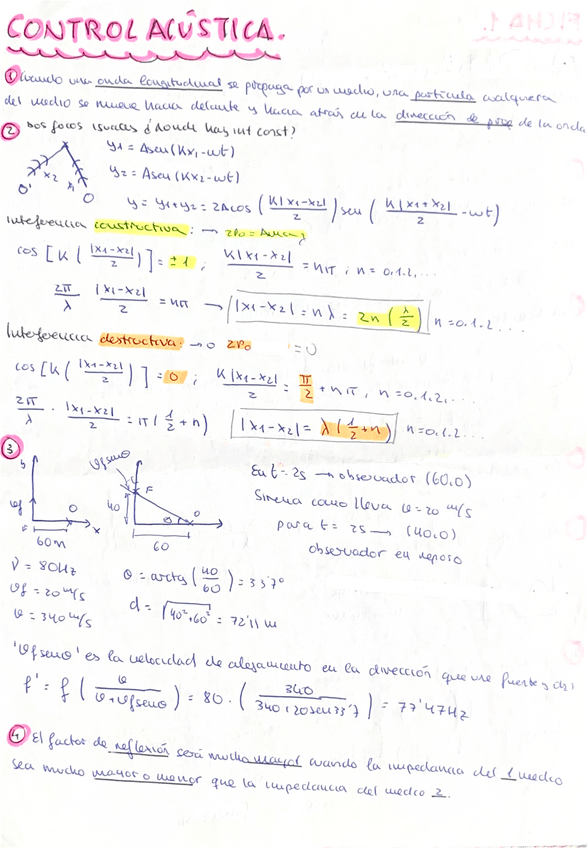 CONTROL ACÚSTICA.
① Cuando una onda longitudinal se propaga por un medio, una partícula cualquiera
del medio se mueve hacia delante y hacia atrás en la dirección de prop de la onda
② Dos focos iguales ¿Donde hay int const?
y1 = Asen(Kx1-wt)
y2 = Asen(Kx2-wt)
x2 x1
O' O
y = y1+y2 = 2Acos (K|x1-x2|/2) sen (K|x1+x2|/2 - wt)
Interferencia constructiva: → 2P0 =
cos [K(|x1-x2|/2)] = ±1 ; K|x1-x2|/2 = nπ ; n = 0.1.2....
2π/λ |x1-x2|/2 = nπ → |x1-x2| = nλ = 2n (λ/2) n=0.1.2...
Interferencia destructiva: → 2P0 = 0
cos [K(|x1-x2|/2)] = 0 ; K|x1-x2|/2 = π/2 + nπ, n=0.1.2...
2π/λ · |x1-x2|/2 = π(1/2 + n) |x1-x2| = λ(1/2+n) n=0.1.2...
③
vfsenθ
F
vf 40
O x θ O
60m 60
En t=2s → observador (60,0)
Sirena como lleva v=20 m/s
para t = 2s → (40,0)
observador en reposo
ν = 80Hz
vf = 20 m/s
v = 340 m/s
θ = arctg (40/60) = 33'7°
d = √40²+60² = 72'11 m
'vfsenθ' es la velocidad de alejamiento en la dirección que une fuente y obs
f' = f (v/v+vfsenθ) = 80 · (340/340+20sen33'7) = 77'47Hz
④ El factor de reflexión será mucho mayor cuando la impedancia del 1 medio
sea mucho mayor o menor que la impedancia del medio 2.